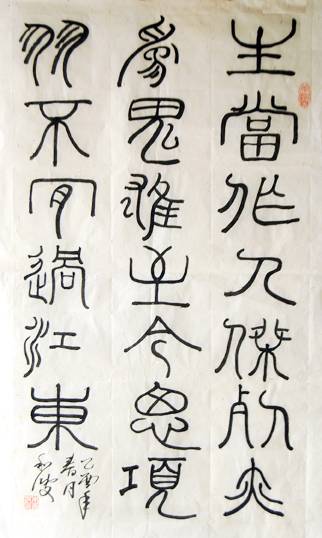 生當作人傑死亦
為鬼雄至今思項
羽不肯過江東
乙酉年
春月